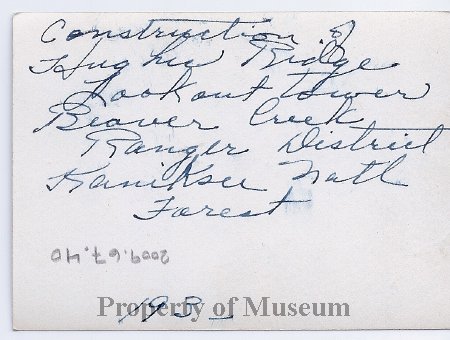 Construction of
Hughes Ridge
Lookout tower
Beaver Creek
Ranger District
Kaniksu Natl
Forest
2009.67.40
Property of Museum
193_